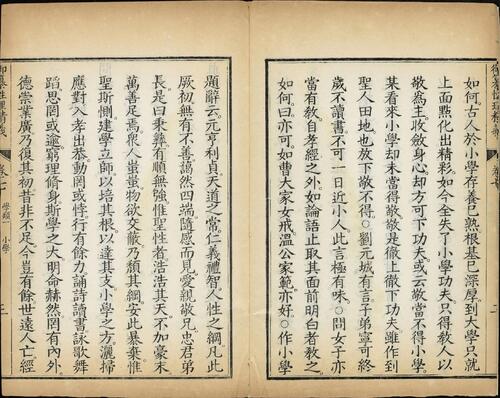 如何。古人於小學存養已熟根基已深厚。到大學只就
上面㸃化出精彩。如今全失了小學功夫。只得教人以
敬為主。收斂身心。却方可下功夫。或云敬當不得小學。
某看來小學却未當得敬。敬是徹上徹下功夫。雖作到
聖人田地也放下敬不得。○劉元城有言。子弟寧可終
歲不讀書。不可一日近小人。此言極有味。○問女子亦
當有教。自孝經之外。如論語止取其面前明白者教之
如何。曰亦可。如曹大家女戒。溫公家範亦好。○作小學
題辭云。元亨利貞。天道之常。仁義禮智。人性之綱。凡此
厥初。無有不善。藹然四端。隨感而見。愛親敬兄。忠君弟
長。是曰秉彝。有順無強。惟聖性者。浩浩其天。不加豪末
萬善足焉。衆人蚩蚩。物欲交蔽。乃頹其綱。安此暴棄。惟
聖斯惻。建學立師。以培其根。以達其支。小學之方。灑掃
應對。入孝出恭。動罔或悖。行有餘力。誦詩讀書。詠歌舞
蹈。思罔或逾。窮理修身。斯學之大。明命赫然。罔有內外。
德崇業廣。乃復其初。昔非不足。今豈有餘。世遠人亡。經
學類一
小學
三